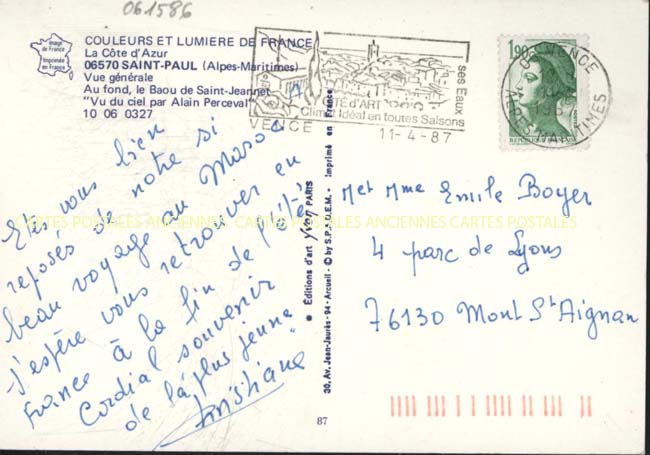 061586
Image de France
Imprimée en France
COULEURS ET LUMIERE DE FRANCE
La Côte d'Azur
06570 SAINT-PAUL (Alpes-Maritimes)
Vue générale
Au fond, le Baou de Saint-Jeannet
"Vu du ciel par Alain Perceval"
10 06 0327
VENCE
CITÉ D'ART
ses Eaux
Climat Idéal en toutes Saisons
11-4-87
1,90
REPUBLIQUE FRANÇAISE
VENCE
ALPES MARITIMES
Etes vous bien
reposés de notre si
beau voyage au Maroc
J'espère vous retrouver en
France à la fin de l'été
Cordial souvenir
de la plus jeune
Christiane
30, Av. Jean-Jaurès - 94 - Arcueil - © by S.P.A.D.E.M. - Imprimé en France
Editions d'art Yvon PARIS
M et Mme Emile Boyer
4 parc de Lyons
76130 Mont St Aignan
87
CARTES POSTALES ANCIENNES CARTES POSTALES ANCIENNES CARTES POSTALES